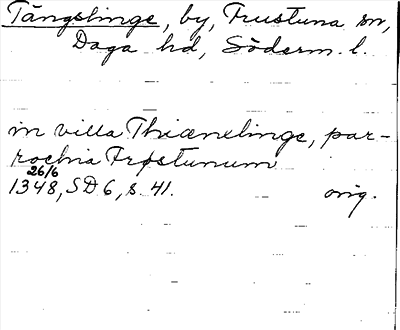 Tängslinge, by, Frustuna sn,
Daga hd, Söderm. l.
in villa Thiænxlinge, par-
rochia Frøstunum
26/6
1348, SD 6, s. 41. orig.